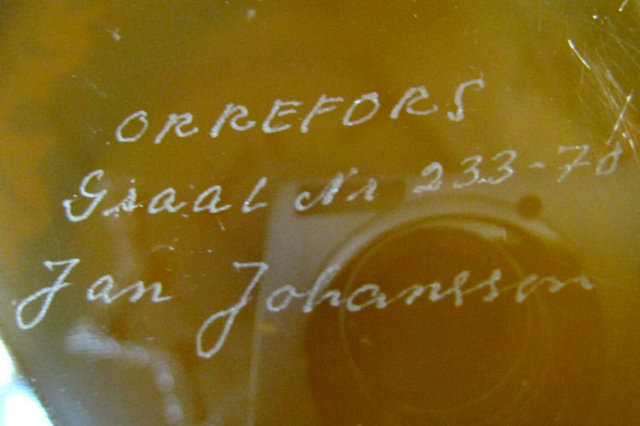 ORREFORS
Graal Nr 233-70
Jan Johansson